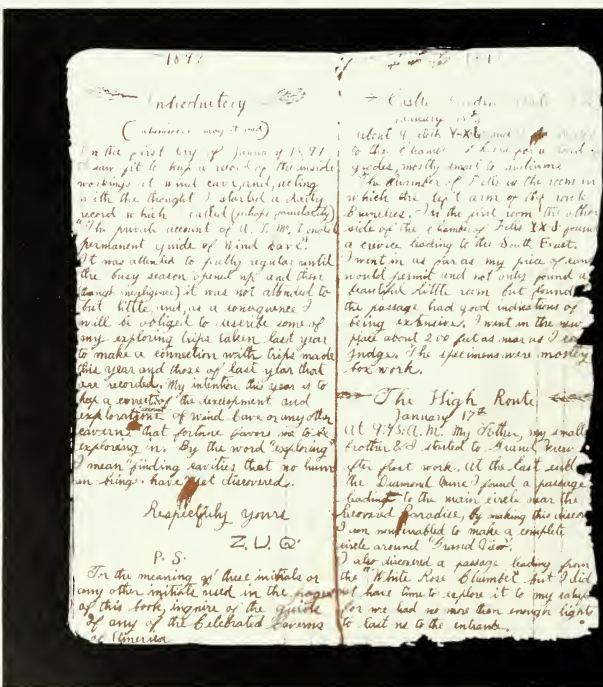 189
Introductory
(whomever may it read)
On the first day of January 1891
I saw fit to keep a record of the inside
workings of Wind Cave, and, acting
with the thought I started a daily
record which I called (perhaps
"The private account of A. F. Mc
permanent guide of Wind Cave."
It was attended to fully regular until
the busy season opened up and then
(through negligence) it was not attended to
but little, and, as a consequence I
will be obliged to describe some of
my exploring trips taken last year
to make a connection with trips made
this year and those of last year that
are recorded. My intention this year is to
keep a correct of the development and
explorations of Wind Cave or any other
caverns that fortune favors me to be
exploring in. By the word "exploring
I mean finding cavities that no hum-
an being have yet discovered.
Respectfully yours
Z.U.Q.
P. S.
For the meaning of these initials or
any other initials used in the pages
of this book, inquire of the guide
of any of the Celebrated Caverns
of America
Castle Garden
January
about 9
to the Chamber of
geodes, mostly small to mediums.
The Chamber of Felts is the room in
which the left arm of the route
In the first room the other
side of the chamber of Felts YXS found
a crevice leading to the South East.
I went in as far as my piece of
would permit and not only found a
beautiful little room but found
the passage had good indications of
being extensive. I went in the new
place about 200 feet as near as I
judge. The specimens were mostly
box work.
The High Route
January 17th
At 9:45 A.M. My Father, my small
brother & I started to Grand View
after frost work. At the last
the Diamond I found a passage
leading to the main circle near the
Paradise, by making this
I am now enabled to make a complete
circle around "Grand View".
I also discovered a passage leading from
the "White Rose Chamber but I did
not have time to explore it to my
for we had no more than enough lights
to last me to the entrance.